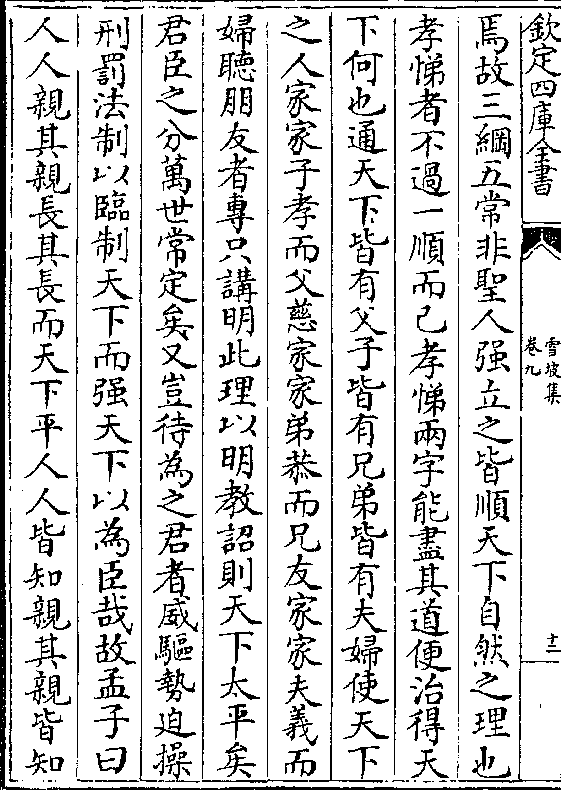 欽定四庫全書
雪坡集
卷九
十三
焉故三綱五常非聖人强立之皆順天下自然之理也
孝悌者不過一順而已孝悌兩字能盡其道便治得天
下何也通天下皆有父子皆有兄弟皆有夫婦使天下
之人家家子孝而父慈家家弟恭而兄友家家夫義而
婦聽朋友者專只講明此理以明教詔則天下太平矣
君臣之分萬世常定矣又豈待為之君者威驅勢迫操
刑罰法制以臨制天下而强天下以為臣哉故孟子曰
人人親其親長其長而天下平人人皆知親其親皆知